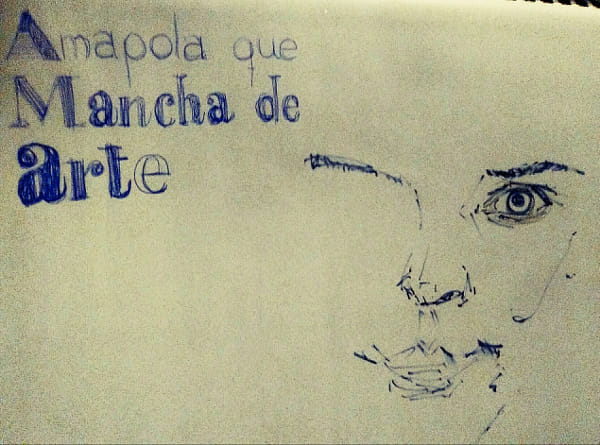 Amapola que
Mancha de
arte